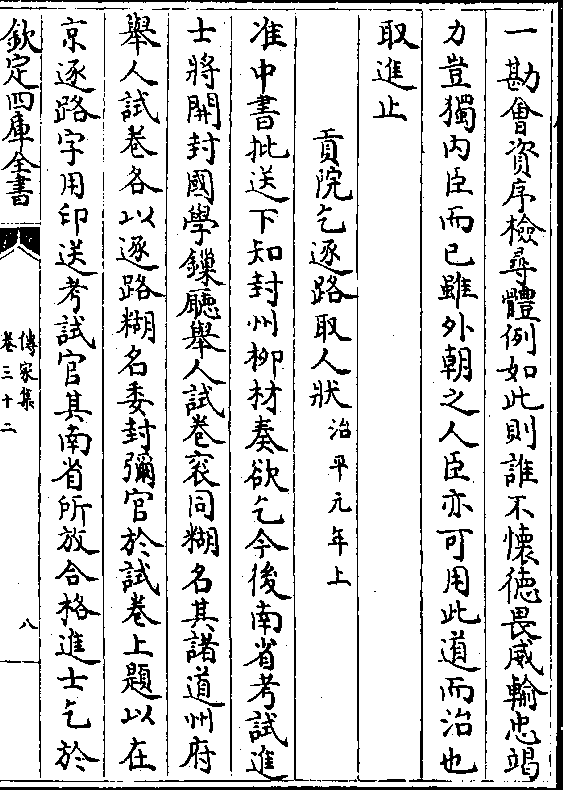 一勘會資序檢尋體例如此則誰不懷德畏威輸忠竭
力豈獨内臣而已雖外朝之人臣亦可用此道而治也
取進止
貢院乞逐路取人狀治平元年上
准中書批送下知封州栁材奏欲乞今後南省考試進
士將開封國學鏁廳舉人試卷衮同糊名其諸道州府
舉人試卷各以逐路糊名委封彌官於試卷上題以在
京逐路字用印送考試官其南省所放合格進士乞於
欽定四庫全書
傳家集
卷三十二
八